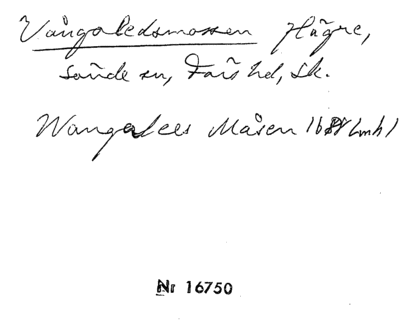 Vångaledsmossen Hägre,
sände sn, Färs hd, Sk.
Wangalees Måsen
Nr 16750